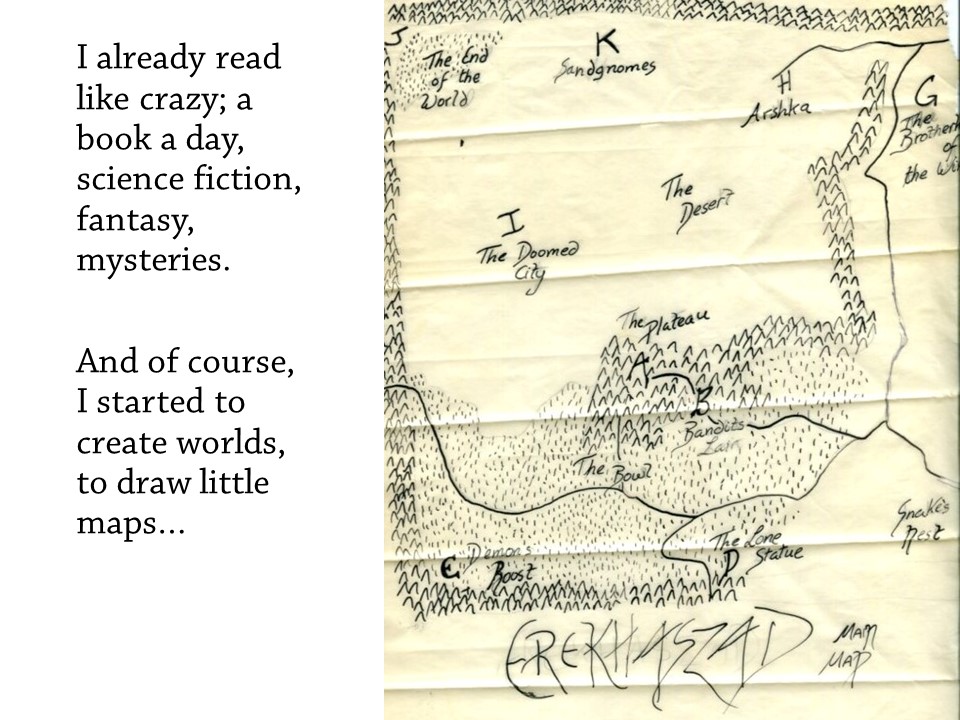 I already read
like crazy; a
book a day,
science fiction,
fantasy,
mysteries.
And of course,
I started to
create worlds,
to draw little
maps...
J
The End
of the
World
K
Sandgnomes
H
Arshka
G
The
of
the
The
Desert
I
The Doomed
City
The Plateau
A
B
Bandits
Lair
The Bowl
Snake's
Nest
The Lone
Statue
D
Demon's
Roost
EREKHASZAD
MAIN
MAP